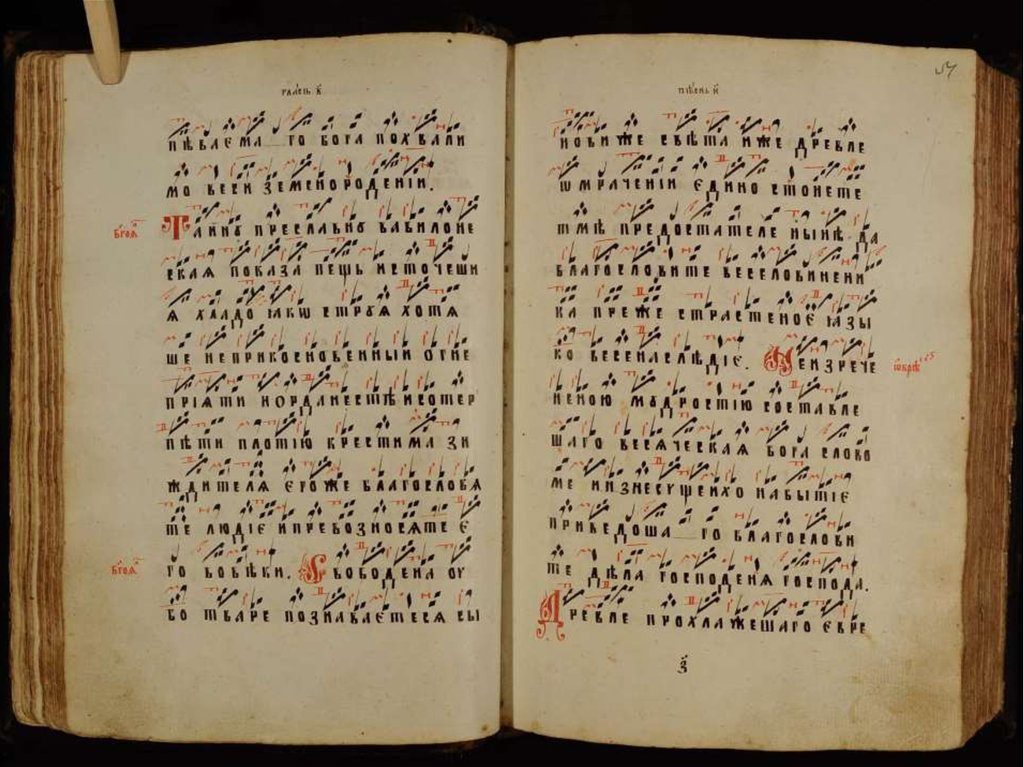 гласъ в҃
пѣваема го бога похвали
мо веси земенородении.
Тайнꙋ преславьнꙋ вавилоне
ская показа пещь источеши
я хладо ꙗкѡ строꙗ хотя
ше неприкосновенныи огне
прияти иорданестѣи сотер
пѣти плотию крестима зи
ждителя егоже благословя
те людіе ипревозносяте е
го вовѣки. Свободена оу
бо тваре познаваетеся сы
пѣснь и҃
нови же свѣта иже древле
ѡмрачении едино стоиете
тмѣ предостателе нынѣ да
благословите веселовинени
ка преже страстеное ꙗзы
ко весенаслѣдіе. Неизрече
ѡбрѣ
неною мꙋдростію составле
шаго весяческая бога слово
ме изнесущихо набытіе
приведоша го благослови
те дѣла господеня господа.
Древле прохлажешаго евре
з҃